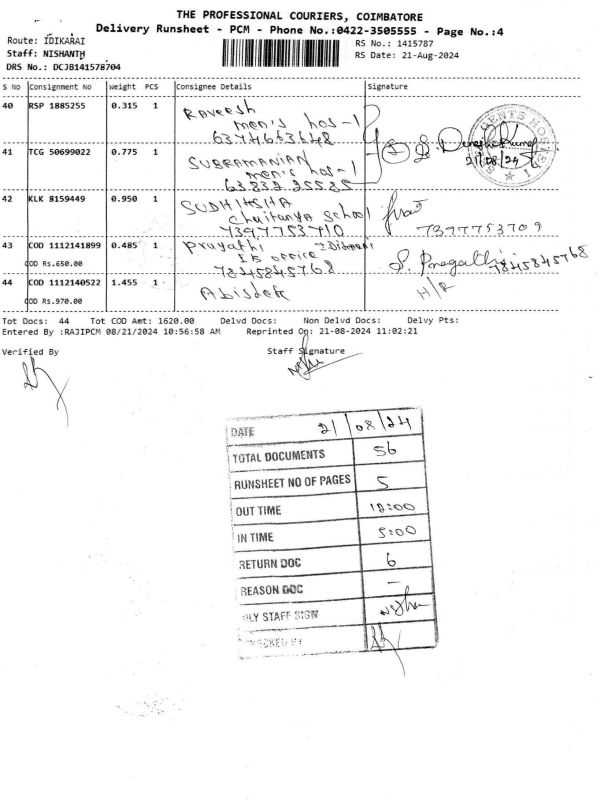 THE PROFESSIONAL COURIERS, COIMBATORE
Delivery Runsheet - PCM - Phone No.:0422-3505555 - Page No.:4
Route: IDIKARAI
RS No.: 1415787
Staff: NISHANTH
RS Date: 21-Aug-2024
DRS No.: DCJB141578704
S No Consignment No Weight PCS Consignee Details Signature
40 RSP 1885255 0.315 1 Raveesh
men's hos-1
6374663648
41 TCG 50699022 0.775 1 SUBRAMANIAN
men's hos-1
63832 25585
21/08/24
42 KLK 8159449 0.950 1 SUDHIKSHA
Chaitanya school
7397753710
7397753709
43 COD 1112141899 0.485 1 Prayathi
EB office
COD RS.650.00 7845845768
S. Pragathi 7845845768
44 COD 1112140522 1.455 1 Abishek H/R
COD RS.970.00
Tot Docs: 44 Tot COD Amt: 1620.00 Delvd Docs: Non Delvd Docs: Delvy Pts:
Entered By :RAJIPCM 08/21/2024 10:56:58 AM Reprinted On: 21-08-2024 11:02:21
Verified By Staff Signature
DATE 21/08/24
TOTAL DOCUMENTS 56
RUNSHEET NO OF PAGES 5
OUT TIME 12:00
IN TIME 5:00
RETURN DOC 6
REASON DOC —
DLY STAFF SIGN
CHECKED BY